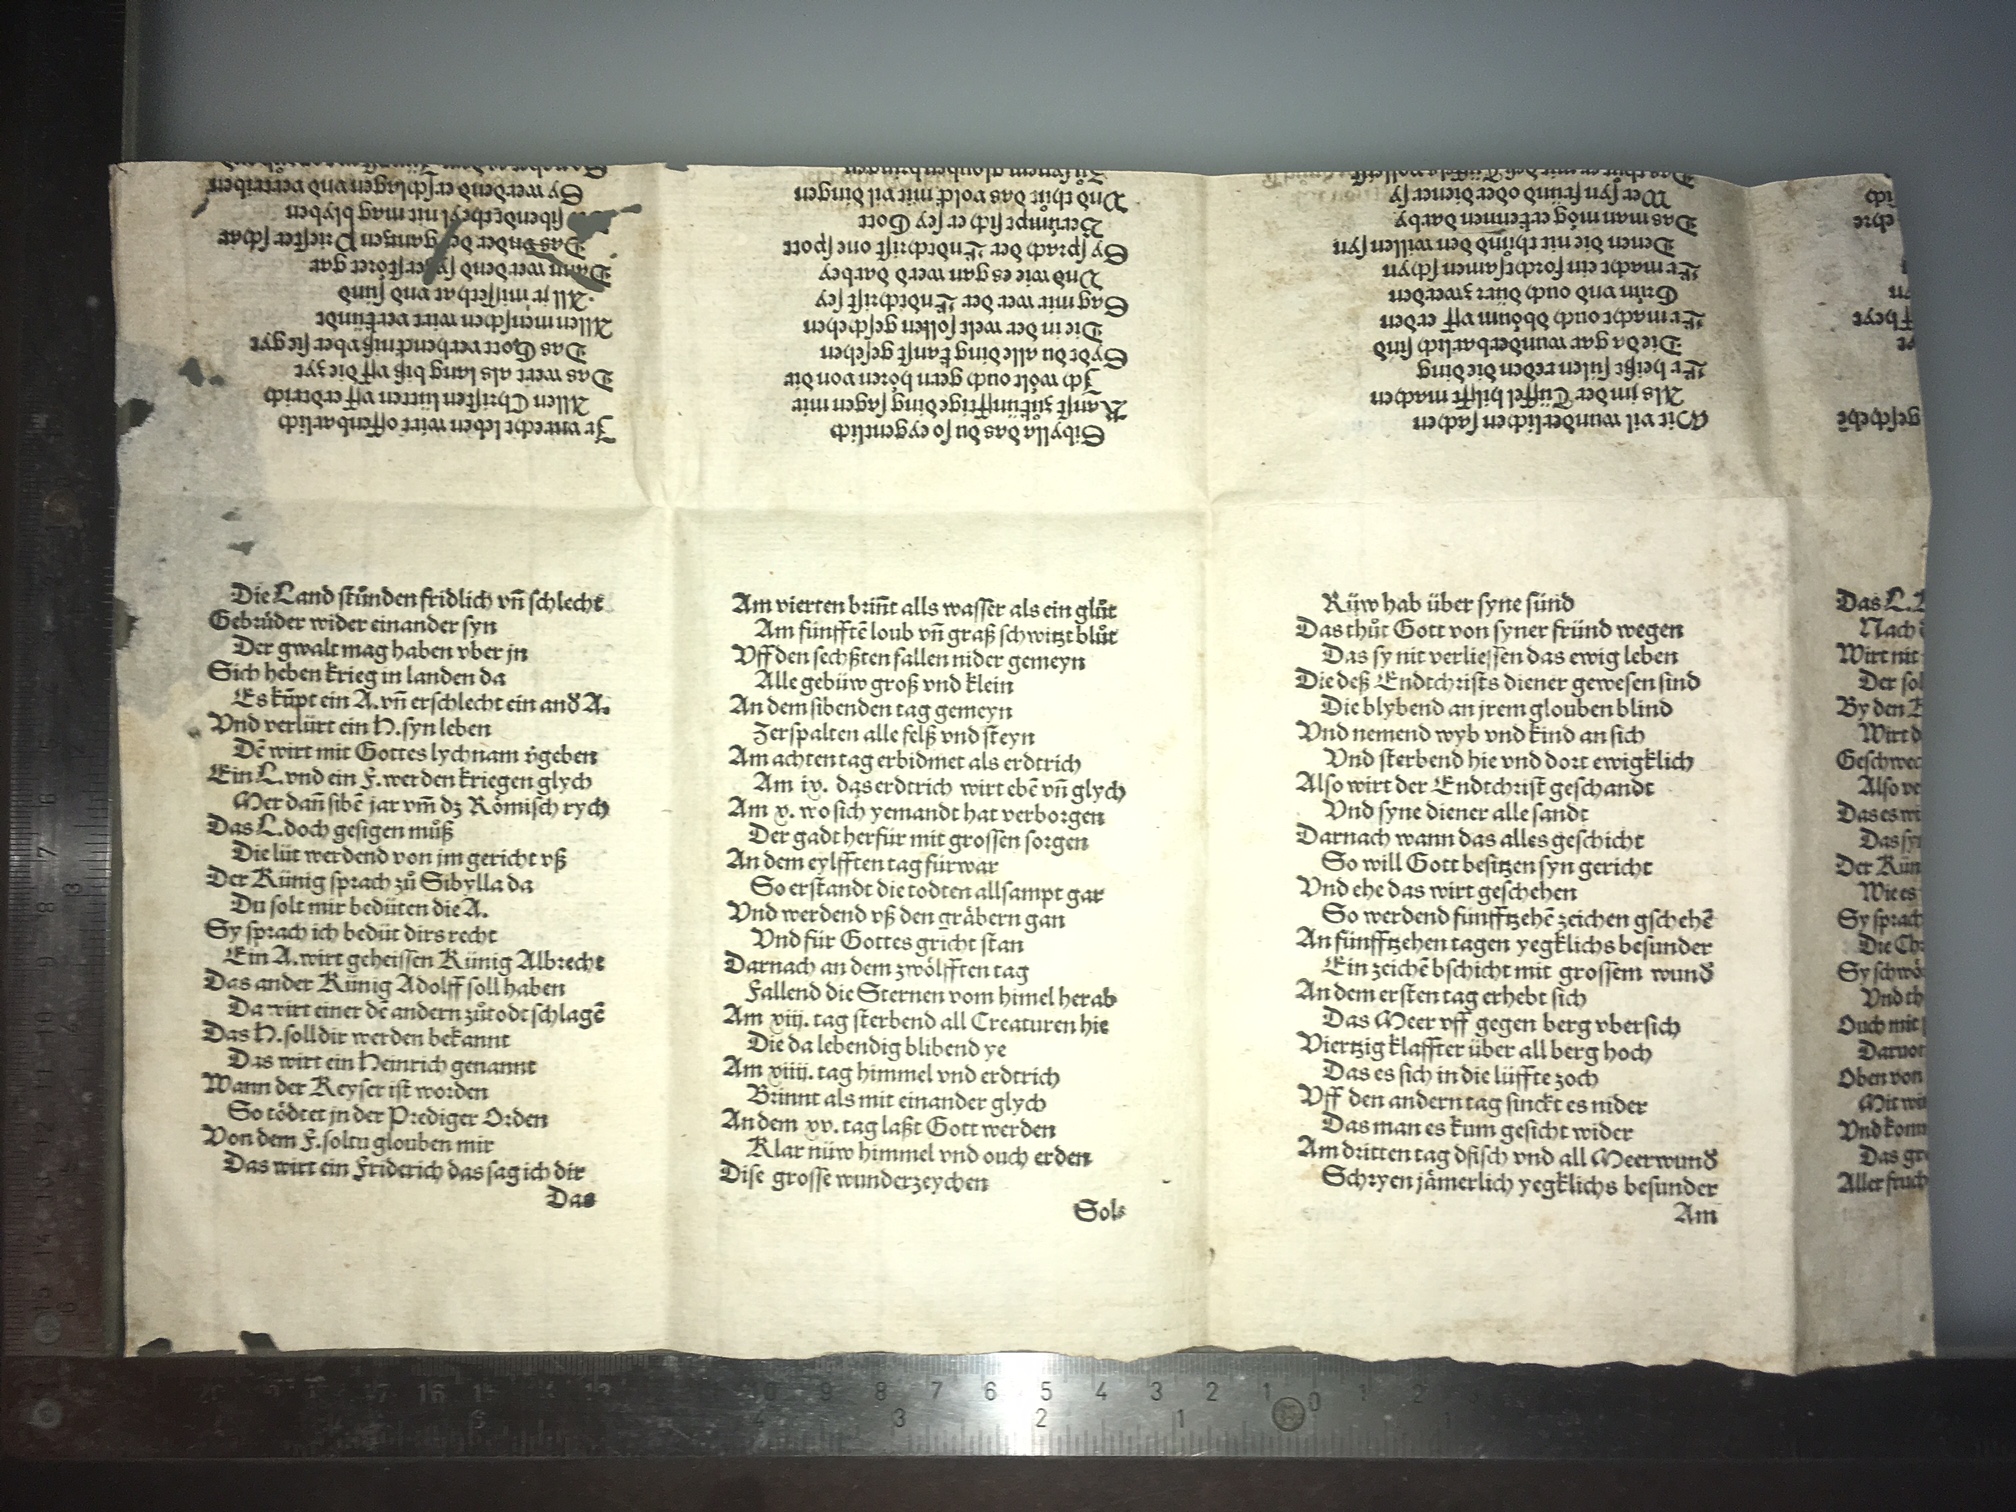 Die Land stůnden fridlich vn̄ schlecht
Gebrůder wider einander syn
Der gwalt mag haben vber jn
Sich heben krieg in landen da
Es kūpt ein A. vn̄ erschlecht ein and A.
Vnd verlürt ein H. syn leben
Dē wirt mit Gottes lychnam v̓geben
Ein L. vnd ein F. werden kriegen glych
Mer dan̄ sibē jar vm̄ dz Römisch rych
Das L. doch gesigen můß
Die lüt werdend von jm gericht vß
Der Künig sprach zů Sibylla da
Du solt mir bedüten die A.
Sy sprach ich bedüt dirs recht
Ein A. wirt geheissen Künig Albrecht
Das ander Künig Adolff soll haben
Da wirt einer dē andern zůtodt schlagē
Das H. soll dir werden bekannt
Das wirt ein Heinrich genannt
Wann der Keyser ist worden
So tödtet jn der Prediger Orden
Von dem F. soltu glouben mir
Das wirt ein Friderich das sag ich dir
Das
Am vierten brin̄t alls wasser als ein glůt
Am fünfftē loub vn̄ graß schwitzt blůt
Vff den sechßten fallen nider gemeyn
Alle gebüw groß vnd klein
An dem sibenden tag gemeyn
Zerspalten alle felß vnd steyn
Am achten tag erbidmet als erdtrich
Am ix. das erdtrich wirt ebē vn̄ glych
Am x. wo sich yemandt hat verborgen
Der gadt herfür mit grossen sorgen
An dem eylfften tag fürwar
So erstandt die todten allsampt gar
Vnd werdend vß den gräbern gan
Vnd für Gottes gricht stan
Darnach an dem zwölfften tag
Fallend die Sternen vom himel herab
Am xiij. tag sterbend all Creaturen hie
Die da lebendig blibend ye
Am xiiij. tag himmel vnd erdtrich
Brinnt als mit einander glych
An dem xv. tag laßt Gott werden
Klar nüw himmel vnd ouch erden
Dise grosse wunderzeychen
Sols
Rüw hab über syne sünd
Das thůt Gott von syner fründ wegen
Das sy nit verliessen das ewig leben
Die deß Endtchrists diener gewesen sind
Die blybend an jrem glouben blind
Vnd nemend wyb vnd kind an sich
Vnd sterbend hie vnd dort ewigklich
Also wirt der Endtchrist geschandt
Vnd syne diener alle sandt
Darnach wann das alles geschicht
So will Gott besitzen syn gericht
Vnd ehe das wirt geschehen
So werdend fünfftzehē zeichen gschehē
An fünfftzehen tagen yegklichs besunder
Ein zeichē bschicht mit grossem wund
An dem ersten tag erhebt sich
Das Meer vff gegen berg vbersich
Viertzig klaffter über all berg hoch
Das es sich in die lüffte zoch
Vff den andern tag sinckt es nider
Das man es kum gesicht wider
Am dritten tag dfisch vnd all Meerwund
Schryen jämerlich yegklichs besunder
Am
Das L.
Nach
Wirt nit
Der sol
By den
Wirt d
Geschwec
Also ve
Das es wi
Das syn
Der Kün
Wie es
Sy sprach
Die Ch
Sy schwö
Vnd th
Ouch mit
Darvor
Oben von
Mit wi
Vnd kom
Das gr
Aller fruch
Mit vil wunderlichen sachen
Als jm der Tüffel hilfft machen
Er heißt sülen reden die ding
Die da gar wunderbarlich sind
Er macht ouch dböum vff erden
Grün vnd ouch dürr zwerden
Er macht ein forchtsamen schyn
Denen die nit thůnd den willen syn
Das man mög erkennen darby
Wer syn fründ oder diener sy
Sibylla das du so eygentlich
Kanst zůkünfftige ding sagen mir
Ich wölt ouch gern hören von dir
Syd du alle ding kanst gesehen
Die in der welt solten geschehen
Sag mir wer der Endtchrist sey
Vnd wie es gan werd darbey
Sy sprach der Endtchrist one spott
Berümpt sich er sey Gott
Vnd thůt das volck mit vil dingen
Zů synem glouben bringen
Ir vnrecht leben wirt offenbarlich
Allen Christen lütten vff erdtrich
Das wert als lang biß vff die zyt
Das Gott verhencknis über sie gyt
Allen menschen wirt verkündt
All jr misserhat vnd sünd
Dann werdend sy zerstöret gar
Das der gantzen Priester schar
sibende theyl nit mag blyben
Sy werdend erschlagen vnd vertriben